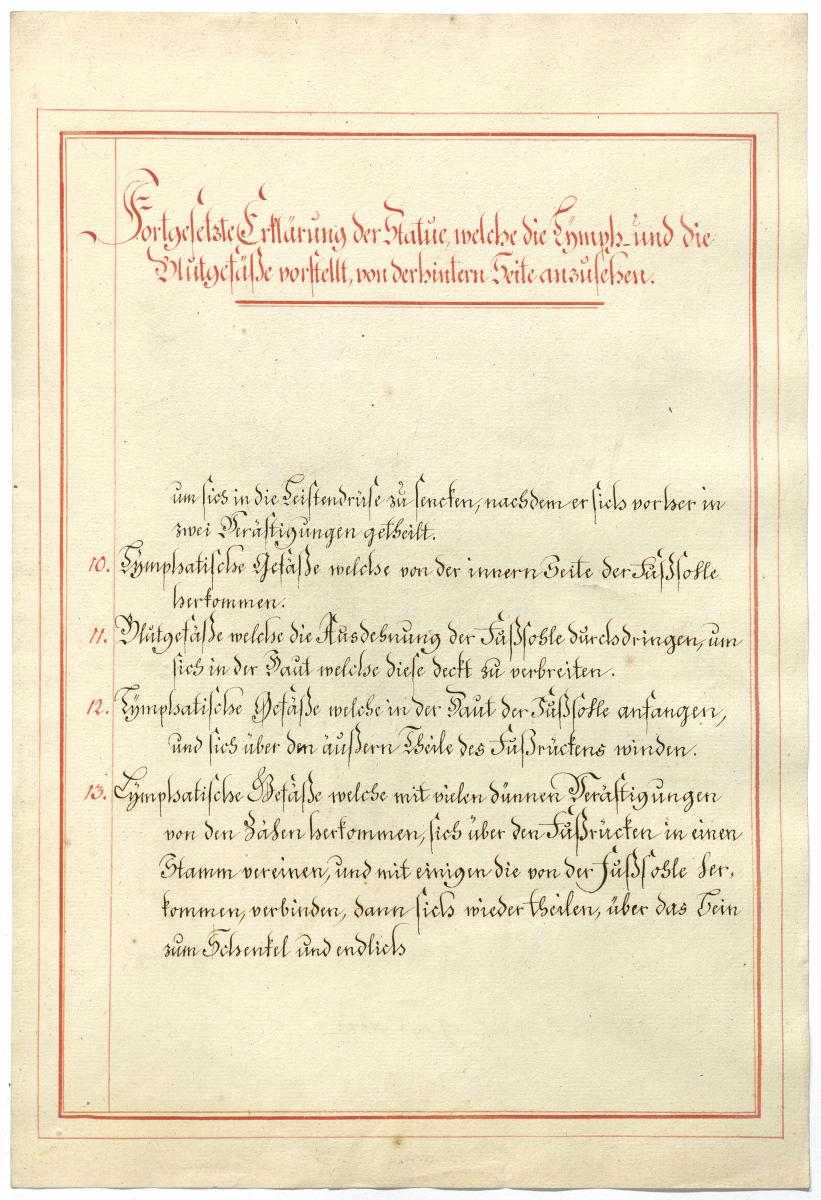 Fortgesetzte Erklärung der Statue, welche die Lymph- und die
Blutgefäße vorstellt, von der hintern Seite anzusehen.
um sich in die Leistendrüse zu sencken, nachdem er sich vorher in
zwei Verästigungen getheilt.
10. Lymphatische Gefäße welche von der innern Seite der Fußsohle
herkommen.
11. Blutgefäße welche die Ausdehnung der Fußsohle durchdringen, um
sich in der Haut welche diese deckt zu verbreiten.
12. Lymphatische Gefäße welche in der Haut der Fußsohle anfangen,
und sich über den äußern Theile des Fußrückens winden.
13. Lymphatische Gefäße welche mit vielen dünnen Verästigungen
von den Zähen herkommen, sich über den Fußrücken in einen
Stamm vereinen, und mit einigen die von der Fußsohle her-
kommen, verbinden, dann sich wieder theilen, über das Bein
zum Schenkel und endlich